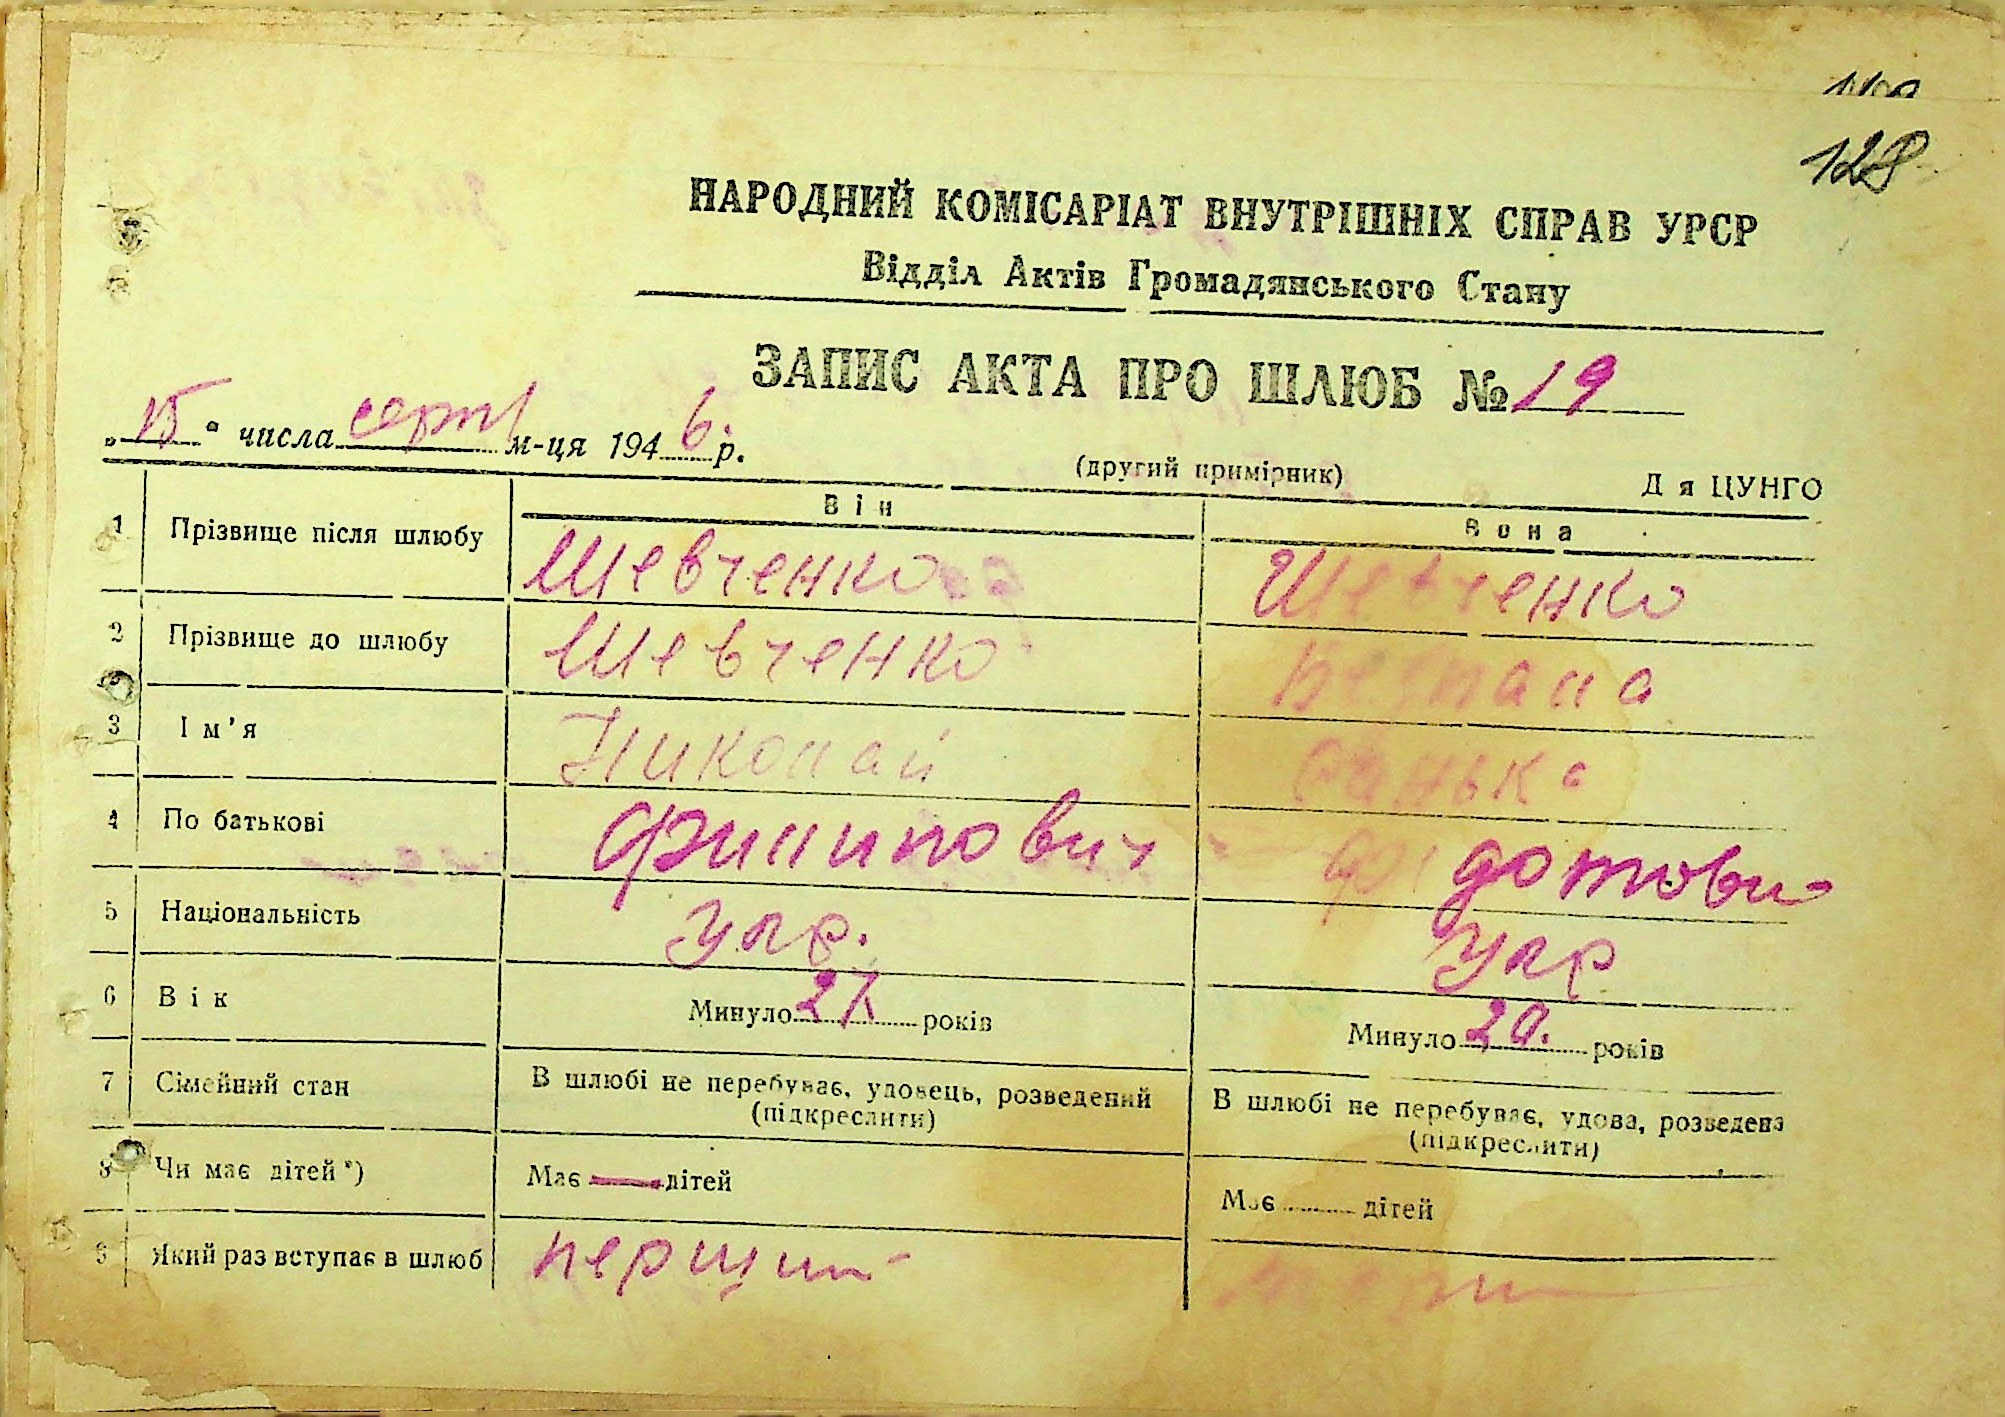 128
НАРОДНИЙ КОМІСАРІАТ ВНУТРІШНІХ СПРАВ УРСР
Відділ Актів Громадянського Стану
ЗАПИС АКТА ПРО ШЛЮБ № 19
„15“ числа серп м-ця 1946. р.
(другий примірник) Д я ЦУНГО
Він Вона
1 Прізвище після шлюбу Шевченко Шевченко
2 Прізвище до шлюбу Шевченко
3 Ім'я Николай
4 По батькові Филипович
5 Національність Укр. Укр
6 Вік Минуло 27 років Минуло 20. років
7 Сімейний стан В шлюбі не перебуває, удовець, розведений (підкреслити) В шлюбі не перебуває, удова, розведена (підкреслити)
8 Чи має дітей*) Має — дітей Має дітей
9 Який раз вступає в шлюб перший